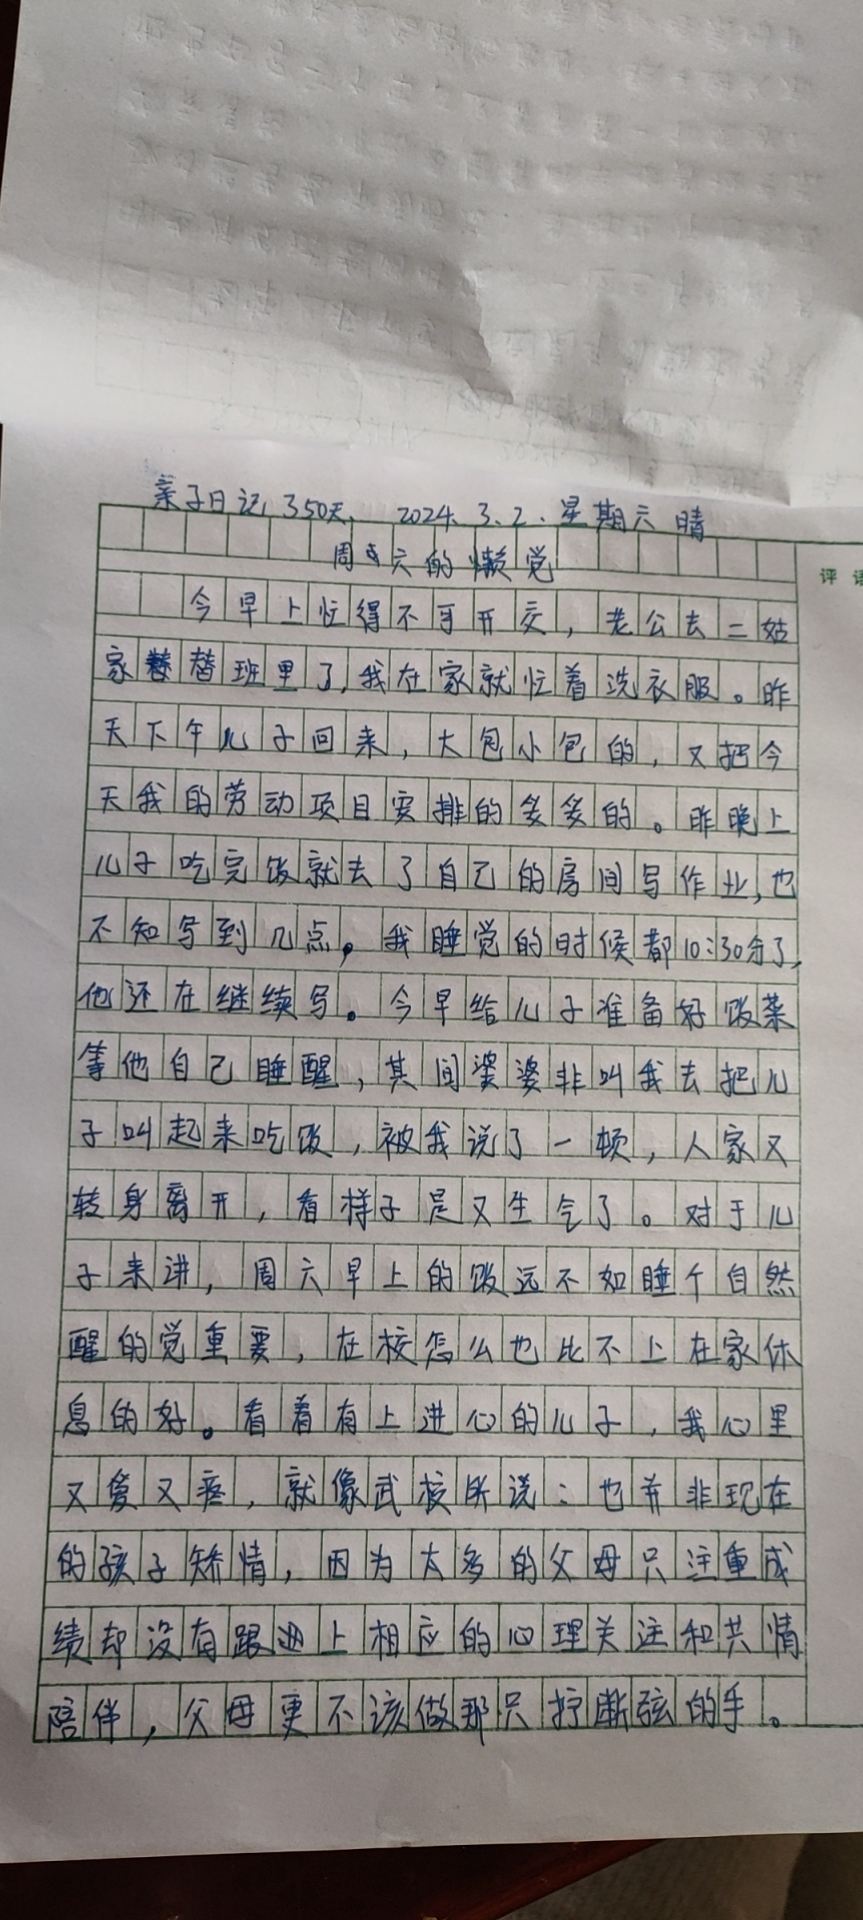 亲子日记350天, 2024.3.2.星期六 晴
周六的懒觉
评语
今早上忙得不可开交，老公去二姑
家替班里了,我在家就忙着洗衣服。昨
天下午儿子回来，大包小包的，又把今
天我的劳动项目安排的多多的。昨晚上
儿子吃完饭就去了自己的房间写作业,也
不知写到几点。我睡觉的时候都10:30分了,
他还在继续写。今早给儿子准备好饭菜
等他自己睡醒，其间婆婆非叫我去把儿
子叫起来吃饭，被我说了一顿，人家又
转身离开，看样子是又生气了。对于儿
子来讲，周六早上的饭远不如睡个自然
醒的觉重要，在校怎么也比不上在家休
息的好。看着有上进心的儿子，我心里
又爱又疼，就像武校所说：也并非现在
的孩子矫情，因为太多的父母只注重成
绩却没有跟进上相应的心理关注和共情
陪伴，父母更不该做那只拧断弦的手。